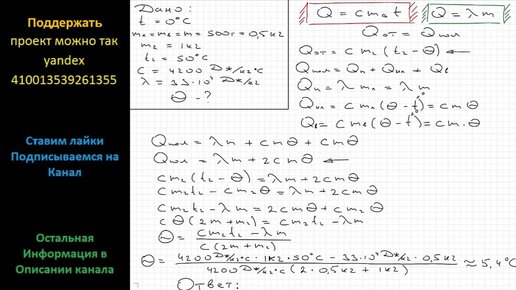 Поддержать
проект можно так
yandex
410013539261355
Ставим лайки
Подписываемся на
Канал
Остальная
Информация в
Описании канала
Дано:
t = 0°C
m₁ = m₂ = m = 500г = 0,5кг
m₂ = 1кг
t₂ = 50°C
c = 4200 Дж/кг°C
λ = 33·10⁴ Дж/кг
Θ - ?
Q = cmΔt
Q = λm
Qот = Qпол
Qот = cm₂(t₂ - Θ)
Qпол = Qп + Qкл + Qв
Qп = λm₁ = λm
Qпол = λm + cmΘ + cmΘ
Qпол = λm + 2cmΘ
cm₂(t₂ - Θ) = λm + 2cmΘ
cm₂t₂ - cm₂Θ = λm + 2cmΘ
cm₂t₂ - λm = 2cmΘ + cm₂Θ
cΘ(2m + m₂) = cm₂t₂ - λm
Θ = (cm₂t₂ - λm) / (c(2m + m₂))
Θ = (4200 Дж/кг°C · 1кг · 50°C - 33·10⁴ Дж/кг · 0,5кг) / (4200 Дж/кг°C (2 · 0,5кг + 1кг)) ≈ 5,4°C
Ответ: